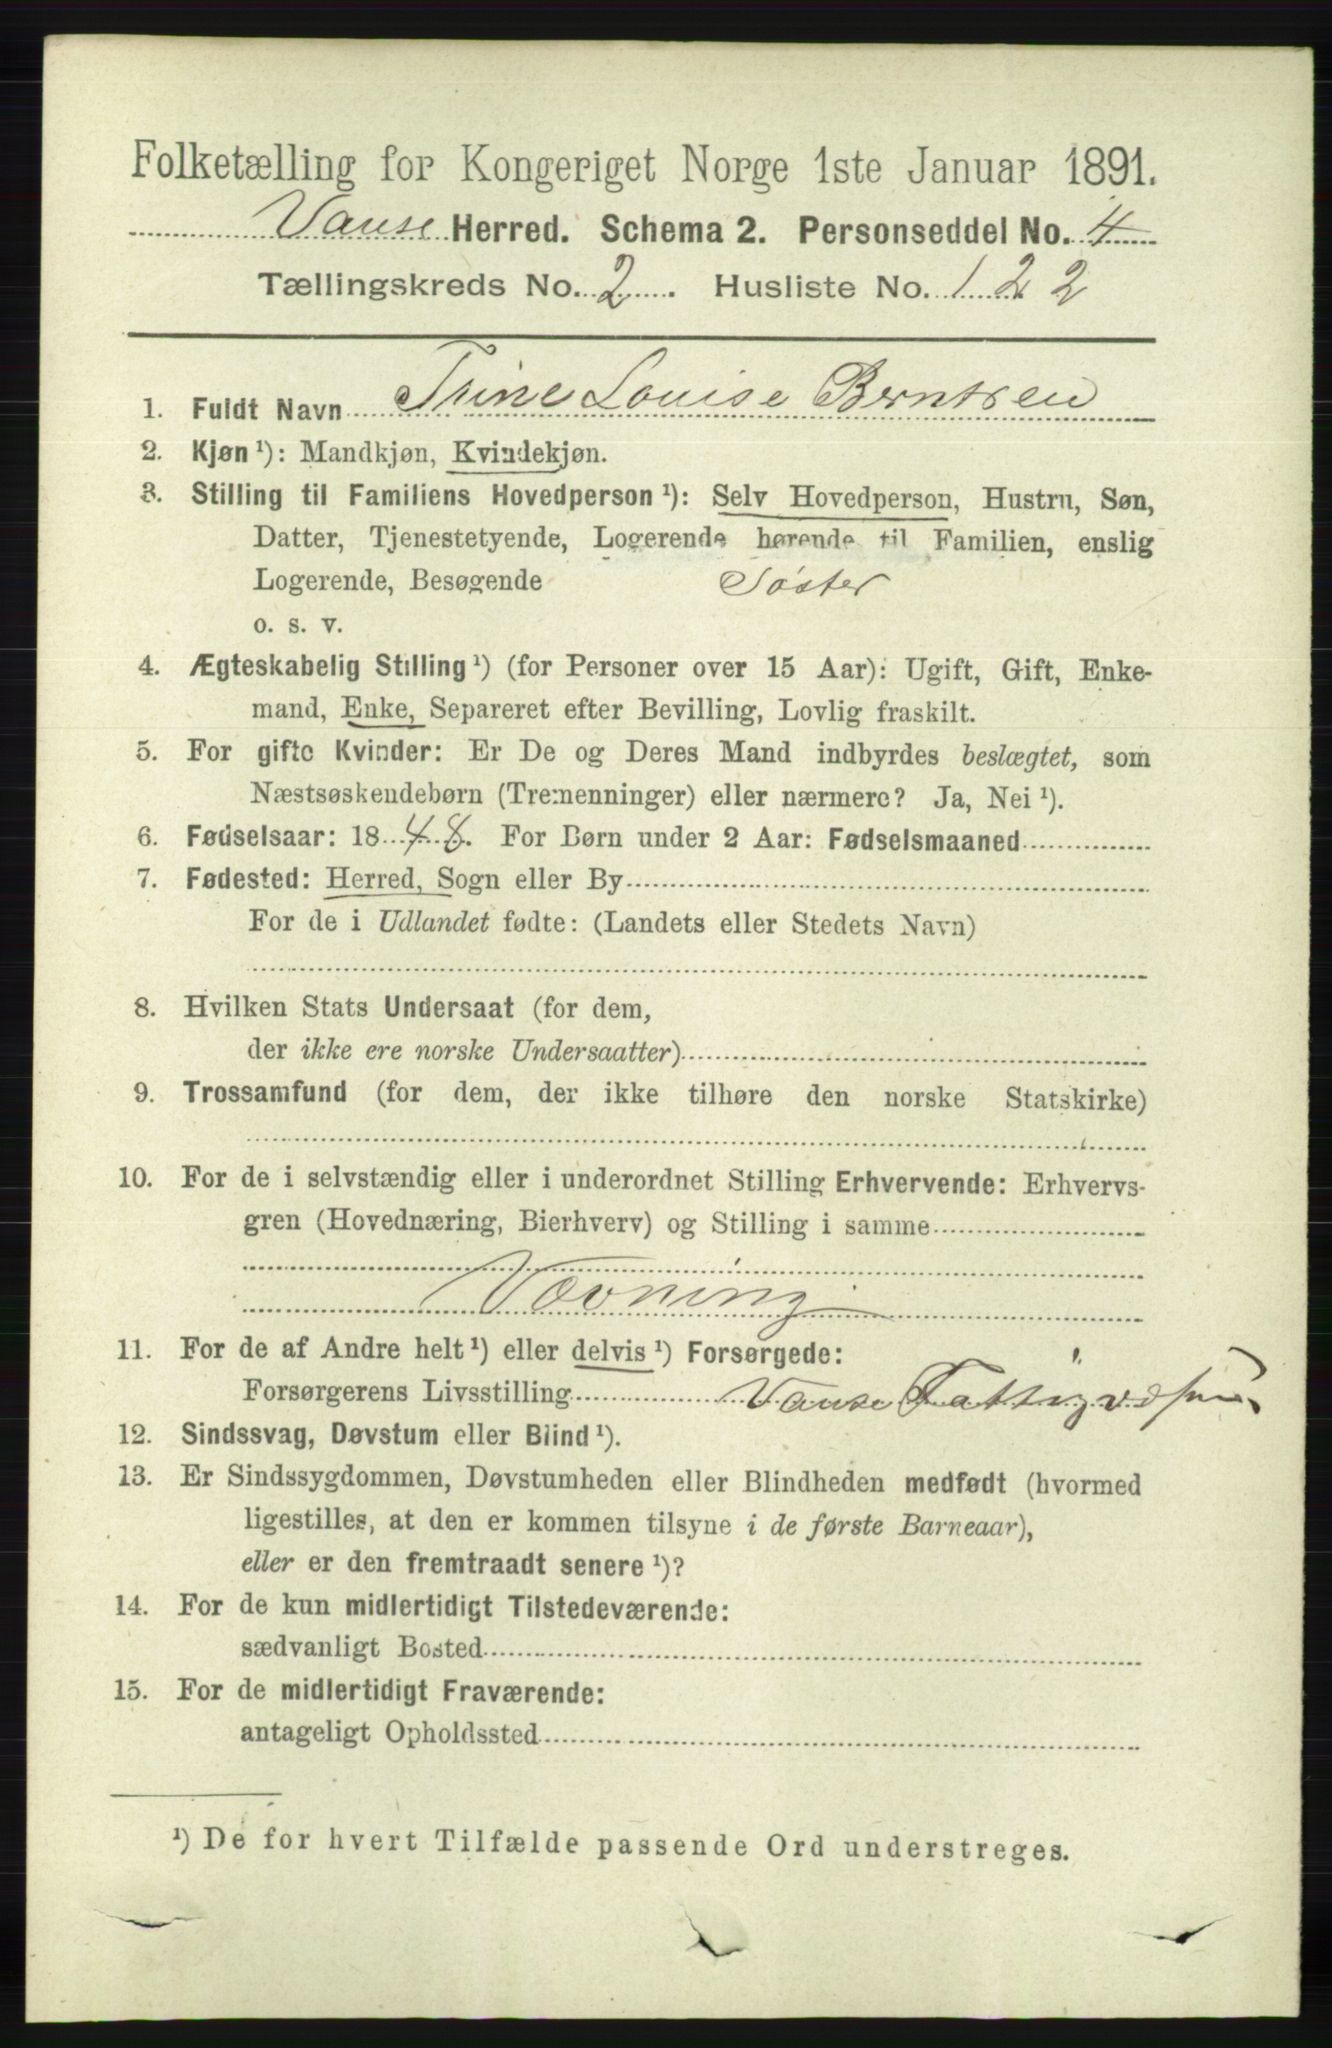 Folketælling for Kongeriget Norge 1ste Januar 1891.
Vanse Herred. Schema 2. Personseddel No. 4
Tællingskreds No. 2. Husliste No. 122
1. Fuldt Navn Trine Louise Berntsen
2. Kjøn ¹): Mandkjøn, Kvindekjøn.
3. Stilling til Familiens Hovedperson ¹): Selv Hovedperson, Hustru, Søn,
Datter, Tjenestetyende, Logerende hørende til Familien, enslig
Logerende, Besøgende Søster
o. s. v.
4. Ægteskabelig Stilling ¹) (for Personer over 15 Aar): Ugift, Gift, Enke-
mand, Enke, Separeret efter Bevilling, Lovlig fraskilt.
5. For gifte Kvinder: Er De og Deres Mand indbyrdes beslægtet, som
Næstsøskendebørn (Tremenninger) eller nærmere? Ja, Nei ¹).
6. Fødselsaar: 1848. For Børn under 2 Aar: Fødselsmaaned
7. Fødested: Herred, Sogn eller By
For de i Udlandet fødte: (Landets eller Stedets Navn)
8. Hvilken Stats Undersaat (for dem,
der ikke ere norske Undersaatter)
9. Trossamfund (for dem, der ikke tilhøre den norske Statskirke)
10. For de i selvstændig eller i underordnet Stilling Erhvervende: Erhvervs-
gren (Hovednæring, Bierhverv) og Stilling i samme
Vævning
11. For de af Andre helt ¹) eller delvis ¹) Forsørgede:
Forsørgerens Livsstilling Vanse
12. Sindssvag, Døvstum eller Blind ¹).
13. Er Sindssygdommen, Døvstumheden eller Blindheden medfødt (hvormed
ligestilles, at den er kommen tilsyne i de første Barneaar),
eller er den fremtraadt senere ¹)?
14. For de kun midlertidigt Tilstedeværende:
sædvanligt Bosted
15. For de midlertidigt Fraværende:
antageligt Opholdssted
¹) De for hvert Tilfælde passende Ord understreges.